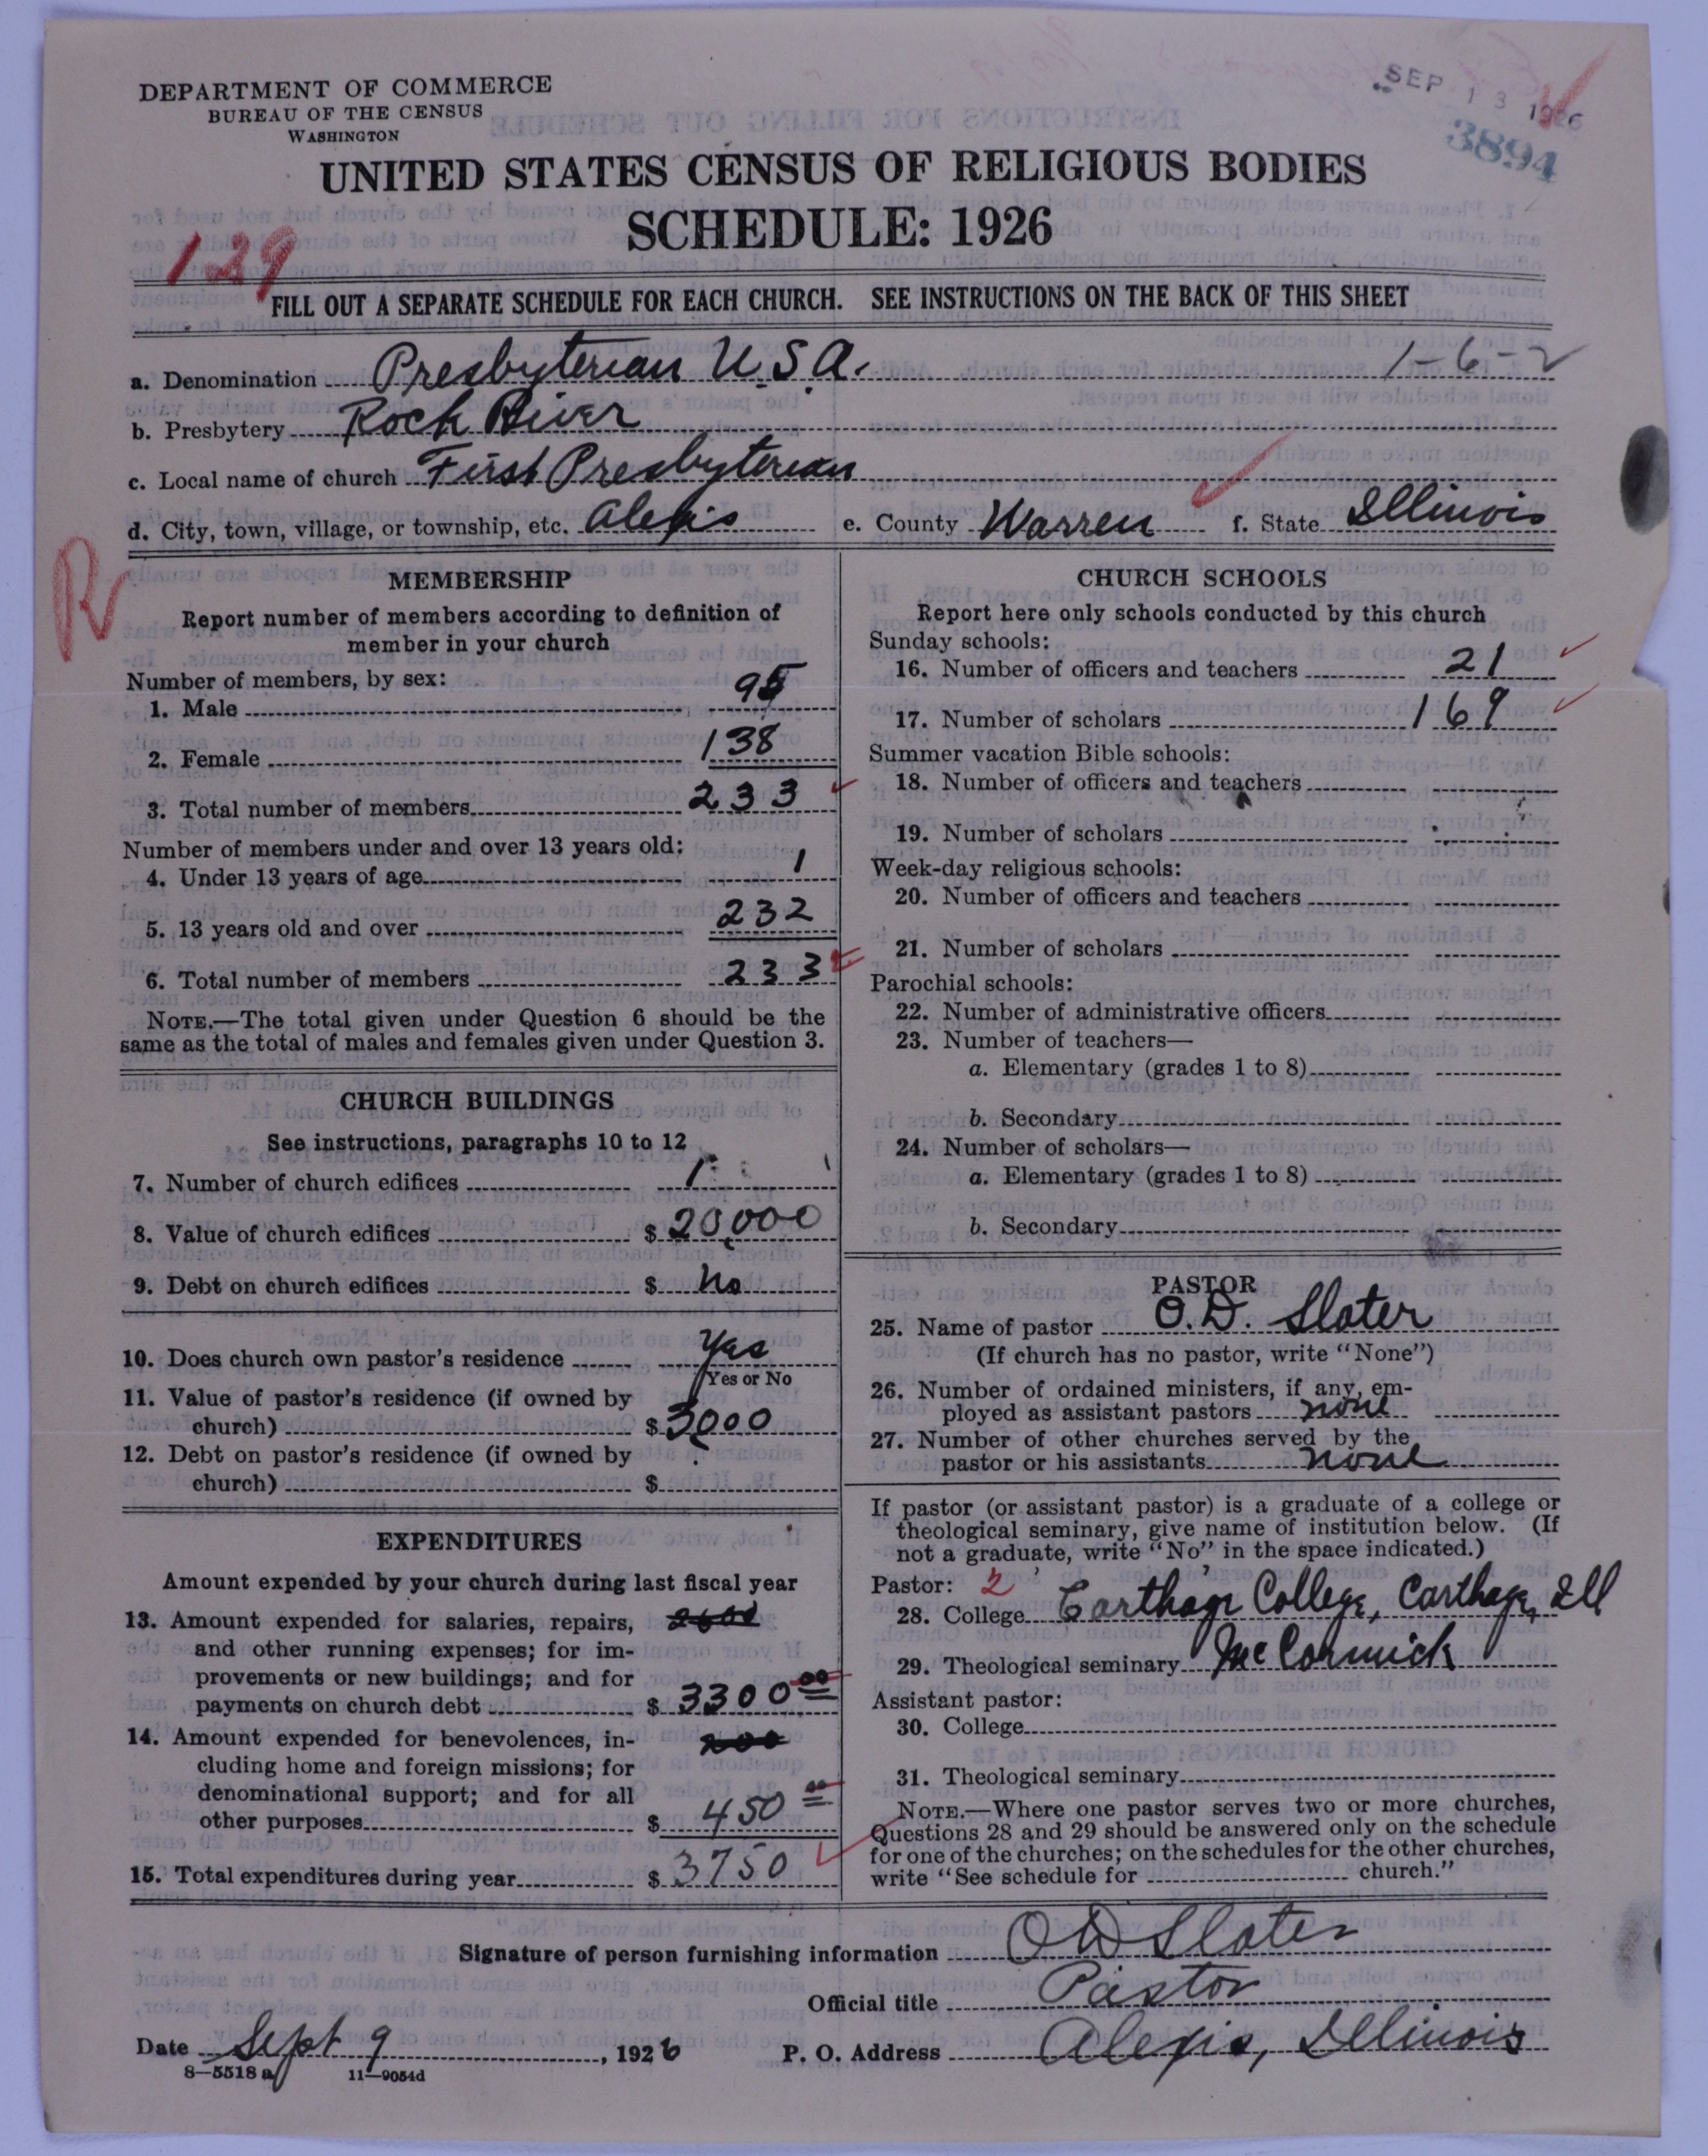 DEPARTMENT OF COMMERCE
BUREAU OF THE CENSUS
WASHINGTON
SEP 13 1926
3894
UNITED STATES CENSUS OF RELIGIOUS BODIES
SCHEDULE: 1926
129
FILL OUT A SEPARATE SCHEDULE FOR EACH CHURCH. SEE INSTRUCTIONS ON THE BACK OF THIS SHEET
a. Denomination Presbyterian U.S.A. 1-6-2
b. Presbytery Rock River
c. Local name of church First Presbyterian
d. City, town, village, or township, etc. Alexis e. County Warren f. State Illinois
R
MEMBERSHIP
Report number of members according to definition of
member in your church
Number of members, by sex:
1. Male 95
2. Female 138
3. Total number of members 233
Number of members under and over 13 years old:
4. Under 13 years of age 1
5. 13 years old and over 232
6. Total number of members 233
NOTE.—The total given under Question 6 should be the
same as the total of males and females given under Question 3.
CHURCH BUILDINGS
See instructions, paragraphs 10 to 12
7. Number of church edifices 1
8. Value of church edifices $ 20,000
9. Debt on church edifices $ No
10. Does church own pastor's residence Yes
Yes or No
11. Value of pastor's residence (if owned by
church) $ 3,000
12. Debt on pastor's residence (if owned by
church) $
EXPENDITURES
Amount expended by your church during last fiscal year
13. Amount expended for salaries, repairs, 2600
and other running expenses; for im-
provements or new buildings; and for
payments on church debt $ 3300 00
14. Amount expended for benevolences, in-
cluding home and foreign missions; for
denominational support; and for all
other purposes $ 450 00
15. Total expenditures during year $ 3750
CHURCH SCHOOLS
Report here only schools conducted by this church
Sunday schools:
16. Number of officers and teachers 21
17. Number of scholars 169
Summer vacation Bible schools:
18. Number of officers and teachers
19. Number of scholars
Week-day religious schools:
20. Number of officers and teachers
21. Number of scholars
Parochial schools:
22. Number of administrative officers
23. Number of teachers—
a. Elementary (grades 1 to 8)
b. Secondary
24. Number of scholars—
a. Elementary (grades 1 to 8)
b. Secondary
PASTOR
25. Name of pastor O.D. Slater
(If church has no pastor, write "None")
26. Number of ordained ministers, if any, em-
ployed as assistant pastors none
27. Number of other churches served by the
pastor or his assistants none
If pastor (or assistant pastor) is a graduate of a college or
theological seminary, give name of institution below. (If
not a graduate, write "No" in the space indicated.)
Pastor: 2
28. College Carthage College, Carthage, Ill
29. Theological seminary McCormick
Assistant pastor:
30. College
31. Theological seminary
NOTE.—Where one pastor serves two or more churches,
Questions 28 and 29 should be answered only on the schedule
for one of the churches; on the schedules for the other churches,
write "See schedule for church."
Signature of person furnishing information O D Slater
Official title Pastor
Date Sept 9, 1926 P. O. Address Alexis, Illinois
8—5518 a 11—9054d